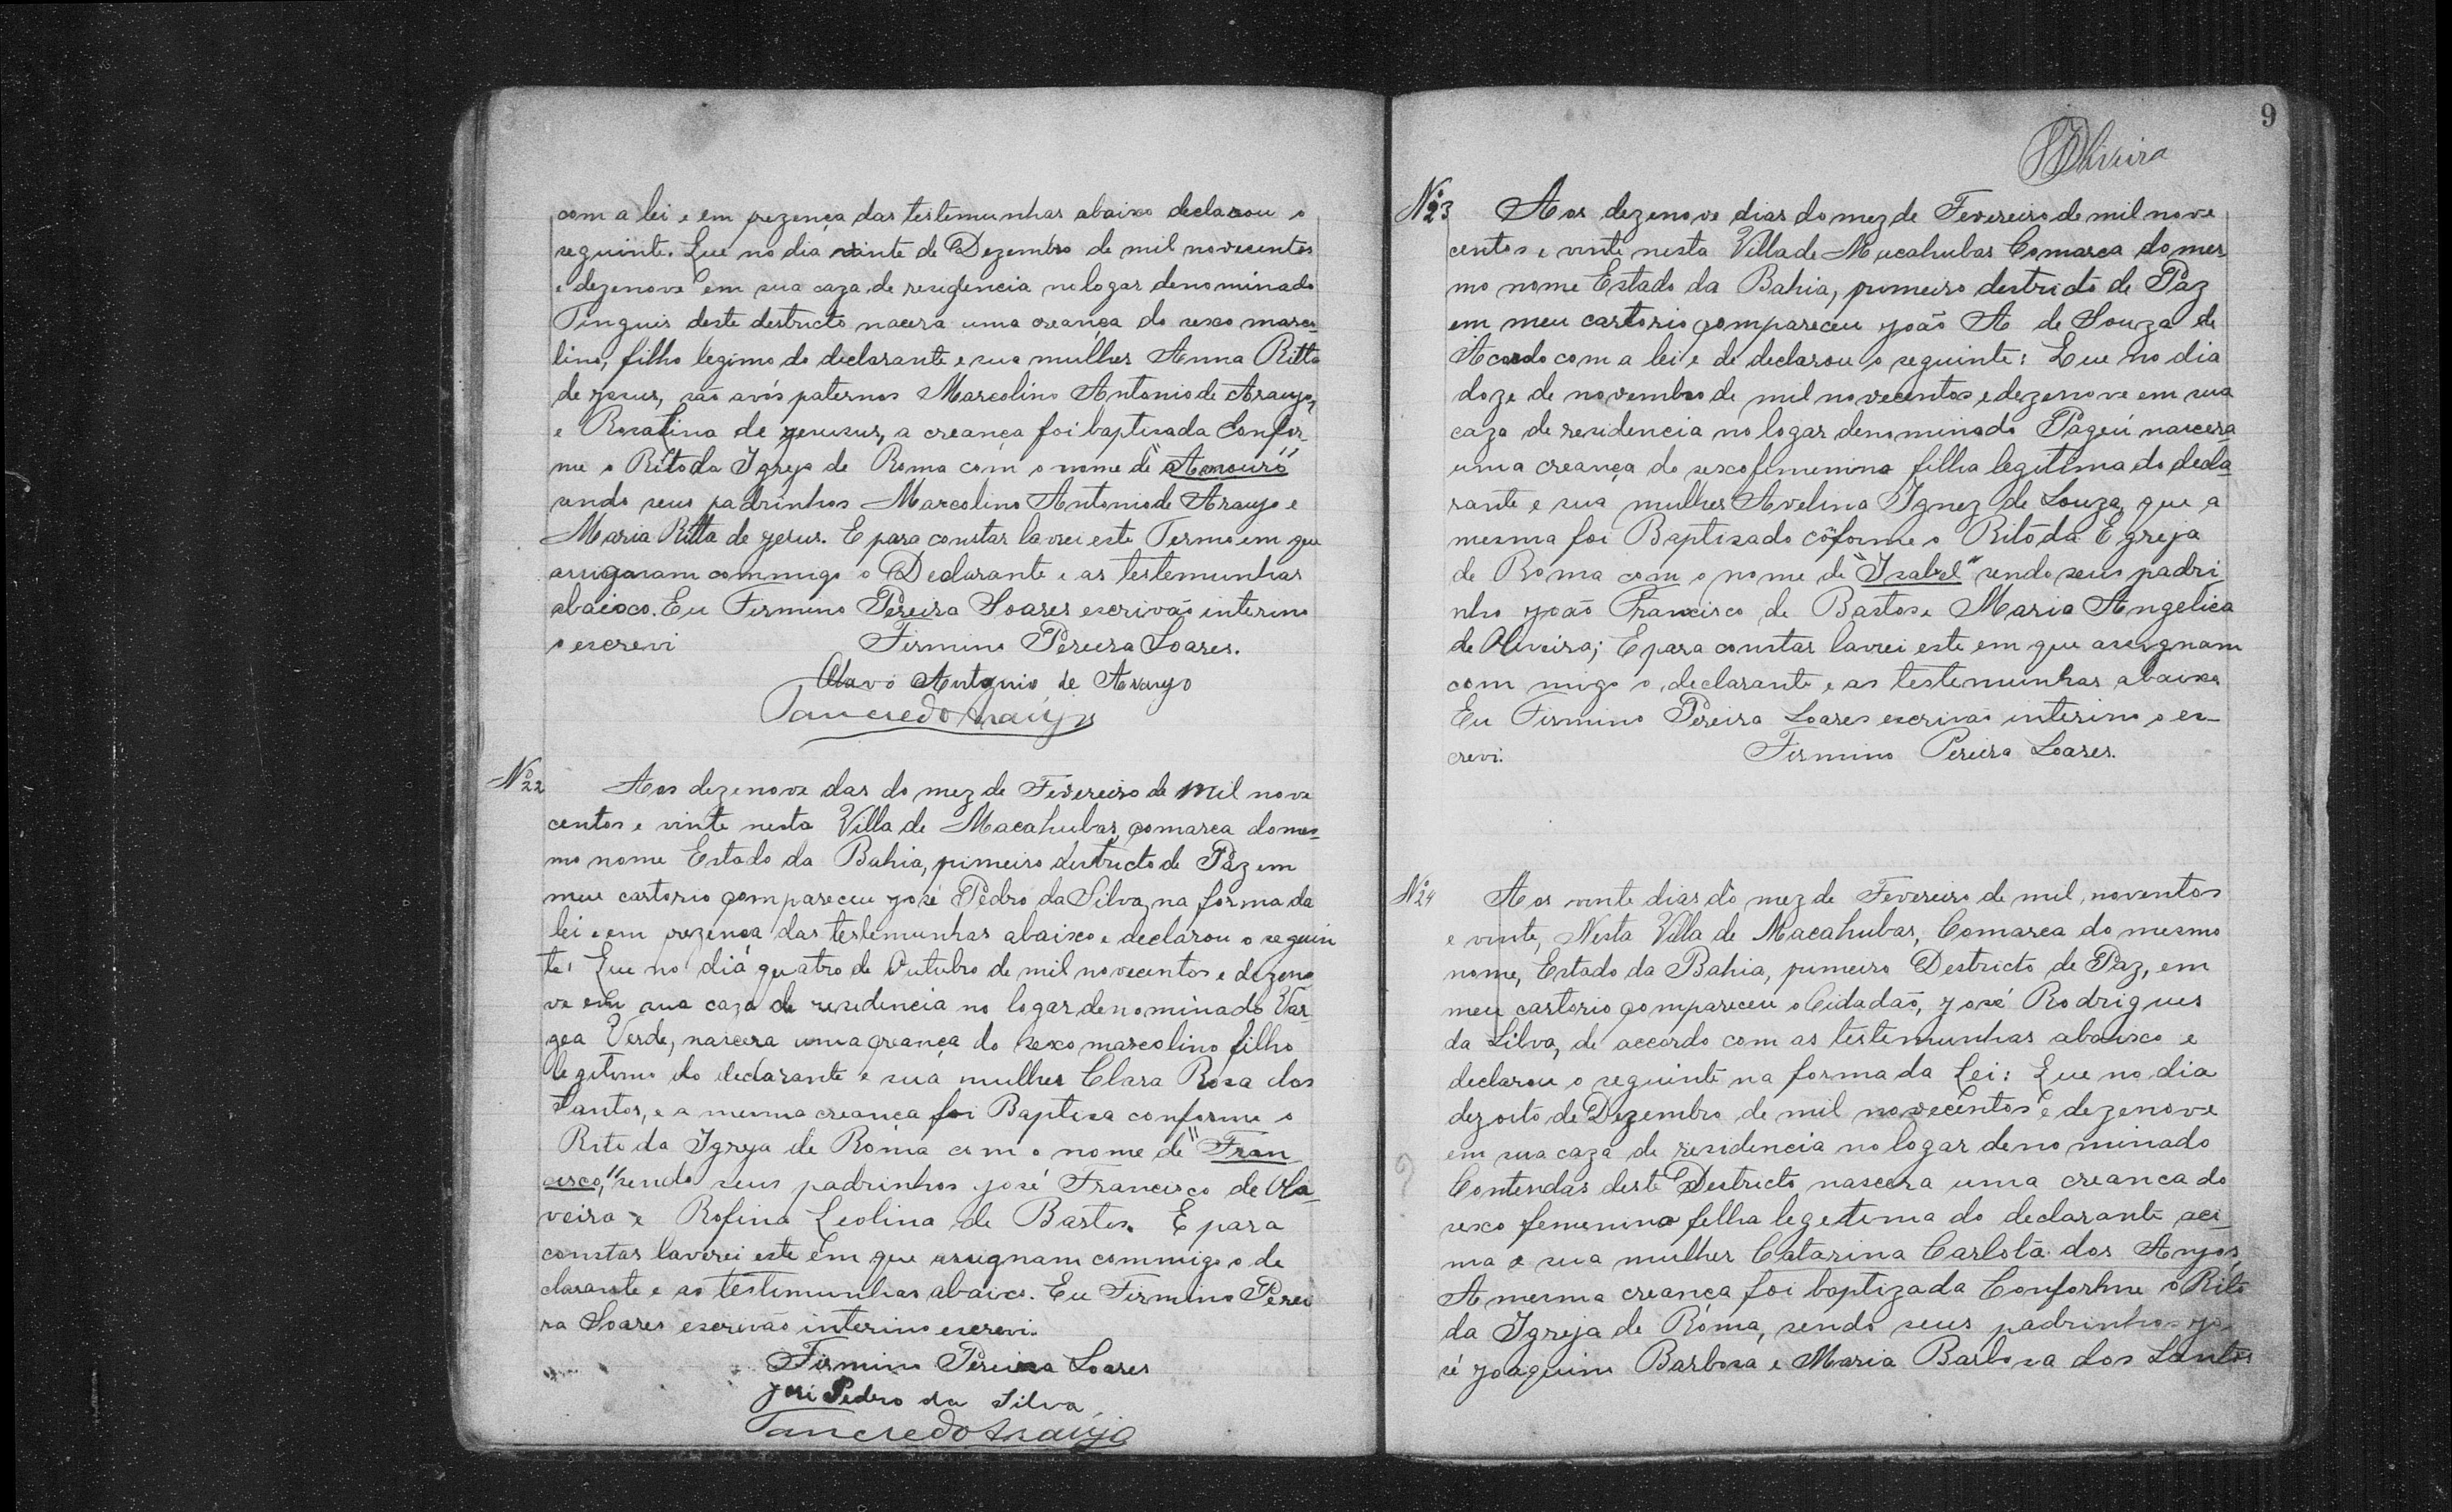 com a lei e em prezença das testemunhas abaixo declarou o
seguinte. Que no dia vinte de Dezembro de mil novecentos
e dezenove em sua caza de residencia no logar denominado
Tinguis deste destricto nacera uma creança do sexo mascu-
lino, filho legimo do declarante e sua mulher Anna Ritta
de Jesus, são avós paternos Marcolino Antonio de Araujo,
e Rosalina de Jesus, a creança foi baptisada Confor-
me o Rito da Igreja de Roma com o nome de "Amouró"
sendo seus padrinhos Marcolino Antonio de Araujo e
Maria Ritta de Jesus. E para constar lavrei este Termo em que
assignaram commigo o Declarante e as testemunhas
abaixo. Eu Firmino Pereira Soares escrivão interino
o escrevi Firmino Pereira Soares.
Olavo Antonio de Araujo
Tancredo Araujo
Nº 22 Aos dezenove das do mez de Fevereiro de mil nove
centos e vinte nesta Villa de Macahubas, comarca do mes-
mo nome Estado da Bahia, pimeiro destricto de Paz em
meu cartorio compareceu José Pedro da Silva, na forma da
lei e em prezença das testemunhas abaixo e declarou o seguin
te: Que no dia quatro de Outubro de mil novecentos e dezeno
ve em sua caza de residencia no logar denominado Var-
gea Verde, nascera uma creança do sexo mascolino filho
legitimo do declarante e sua mulher Clara Rosa dos
Santos, e a mesma creança foi Baptisa conforme o
Rito da Igreja de Roma com o nome de "Fran
cisco," sendo seus padrinhos José Francisco de Oli-
veira e Rofina Leolina de Bastos. E para
constar laverei este em que assignam commigo o de
clarante e as testimunhas abaixo. Eu Firmino Perei
ra Soares escrivão interino escrevi.
Firmino Pereira Soares
José Pedro da Silva
Tancredo Araujo
9
Oliveira
Nº 23 Aos dezenove dias do mez de Fevereiro de mil nove
centos e vinte nesta Villa de Macahubas Comarca do mes
mo nome Estado da Bahia, pumeiro destricto de Paz
em meu cartorio compareceu João A de Souza de
Acordo com a lei e de declarou o seguinte: Que no dia
doze de novembro de mil novecentos e dezenove em sua
caza de residencia no logar denominado Pageú nascera
uma creança do sexo femenino filha legitima do decla-
rante e sua mulher Avelina Ignez de Souza, que a
mesma foi Baptisado cõforme o Rito da Egreja
de Roma com o nome de "Isabel" sendo seus padri
nho João Francisco de Bastos e Maria Angelica
de Oliveira; E para constar lavrei este em que assignam
com migo o declarante e as testemunhas abaixo
Eu Firmino Pereira Soares escrivão interino o es-
crevi. Firmino Pereira Soares.
Nº 24 Aos vinte dias do mez de Fevereiro de mil, noventos
e vinte, Nesta Villa de Macahubas, Comarca do mesmo
nome, Estado da Bahia, pumeiro Destricto de Paz, em
meu cartorio compareceu o Cidadão, José Rodrigues
da Silva, de accordo com as testemunhas abaixo e
declarou o seguinte na forma da Lei: Que no dia
dezoito de Dezembro de mil novecentos e dezenove
em sua caza de residencia no logar denominado
Contendas deste Destricto nascera uma creanca do
sexo femenino felha legetima do declarante aci-
ma e sua mulher Catarina Carlota dos Anjos,
A mesma creança foi baptizada Conforme o Rito
da Igreja de Roma, sendo seus padrinhos Jo-
sé Joaquim Barbosa e Maria Barbosa dos Santos